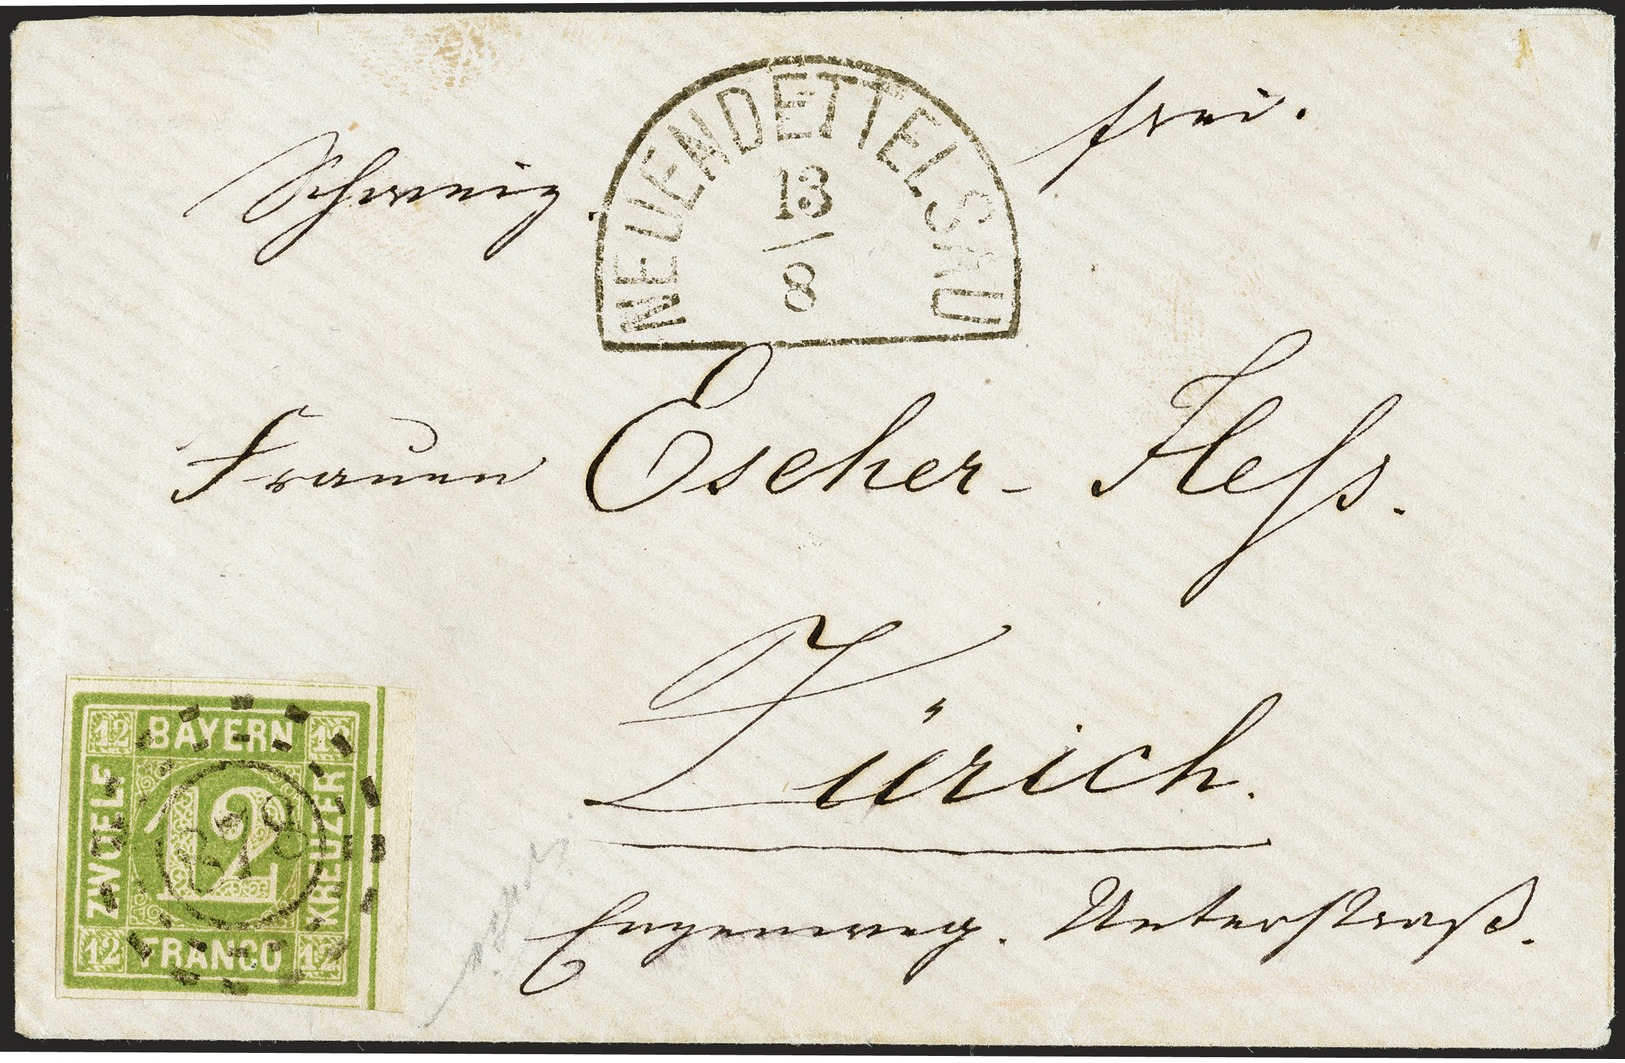 Schweiz.
frei.
NEUENDETTELSAU
13
8
Frauen Escher-Heſs.
Zürich.
Engenweg. Unterstraß.
12 BAYERN 12
ZWOELF
12
KREUZER
12 FRANCO 12